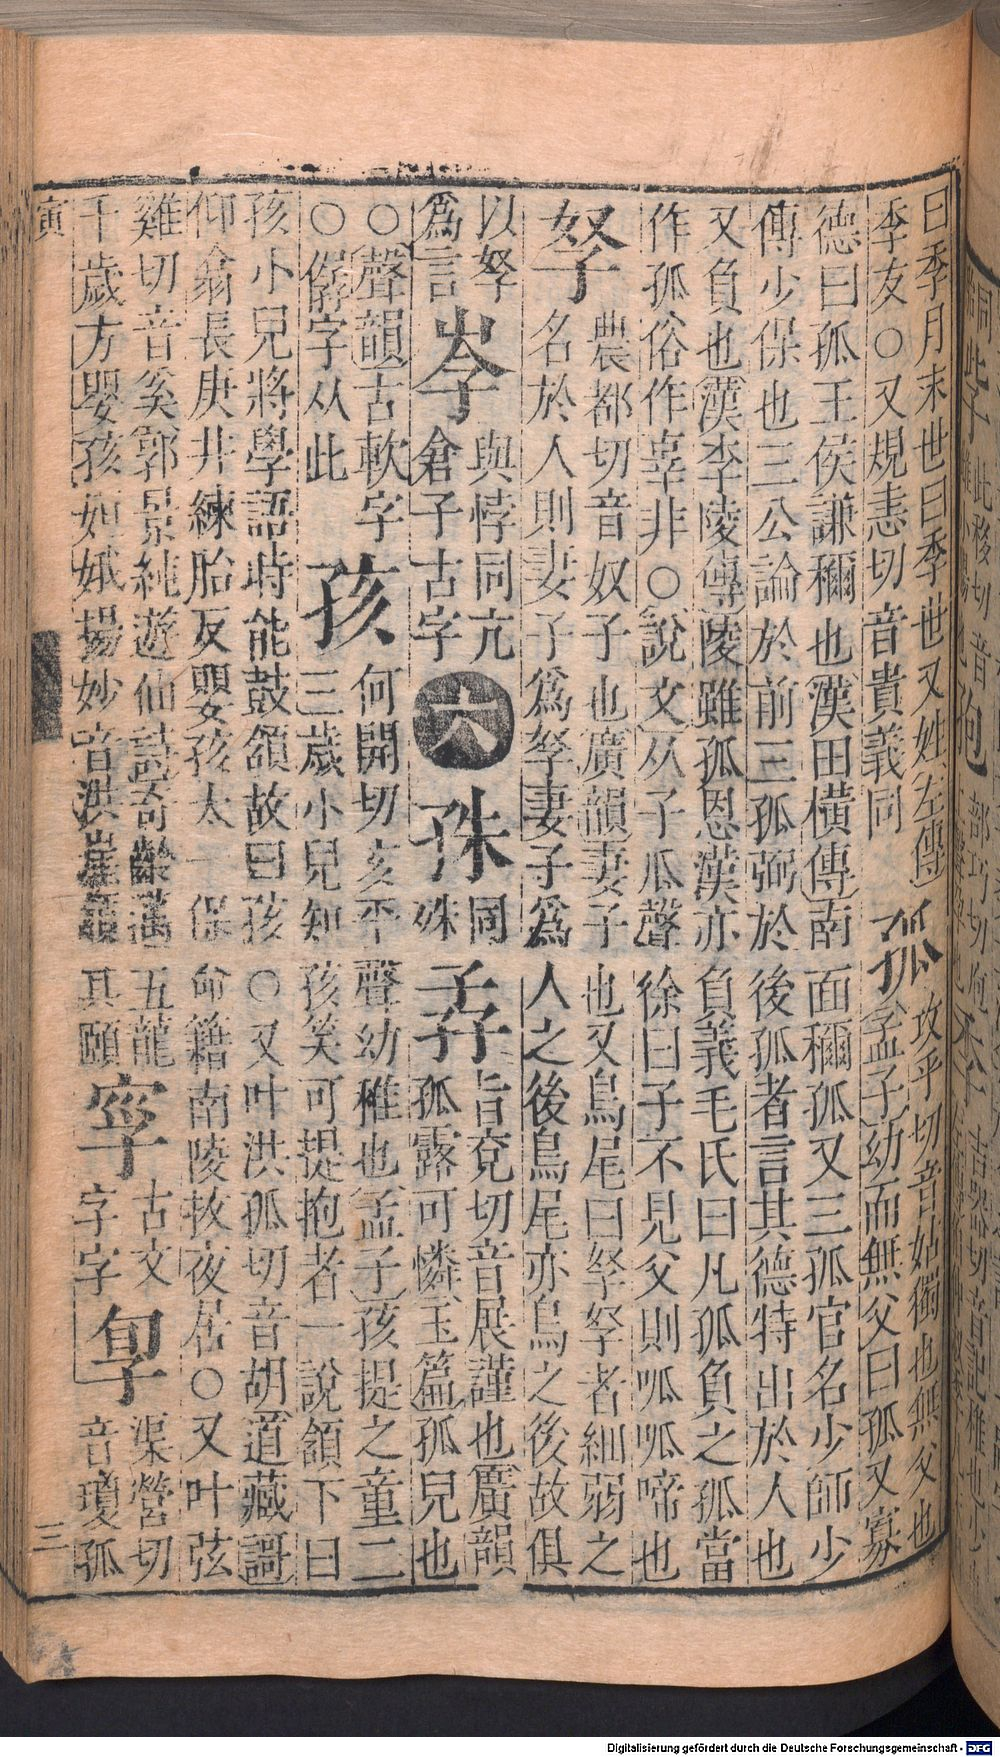 曰季月末世曰季世又姓左傳
季友○又規恚切音貴義同
孤
攻乎切音姑獨也無父也
孟子幼而無父曰孤又寡
德曰孤王侯謙稱也漢田橫傳南面稱孤又三孤官名少師少
傳少保也三公論於前三孤弼於後孤者言其德特出於人也
又負也漢李陵傳陵雖孤恩漢亦負義毛氏曰凡孤負之孤當
作孤俗作辜非○說文从子瓜聲徐曰子不見父則呱呱啼也
孥
農都切音奴子也廣韻妻子也又鳥尾曰孥孥者細弱之
名於人則妻子爲孥妻子爲人之後鳥尾亦鳥之後故俱
以孥
爲言
與悖同亢
倉子古字
六
同
殊
孨
旨兗切音展謹也廣韻
孤露可憐玉篇孤兒也
○聲韻古軟字
○僝字从此
孩
何開切亥平聲幼稚也孟子孩提之童二
三歲小兒知孩笑可提抱者一說頷下曰
孩小兒將學語時能鼓頷故曰孩○又叶洪孤切音胡道藏謌
仰翕長庚井練胎反嬰孩太一保命籍南陵拔夜居○又叶弦
雞切音奚郭景純遊仙詩奇齡邁五龍
千歲方嬰孩妲娥揚妙音洪崖頷其頤
古文
字字
渠營切
音瓊孤
寅
三